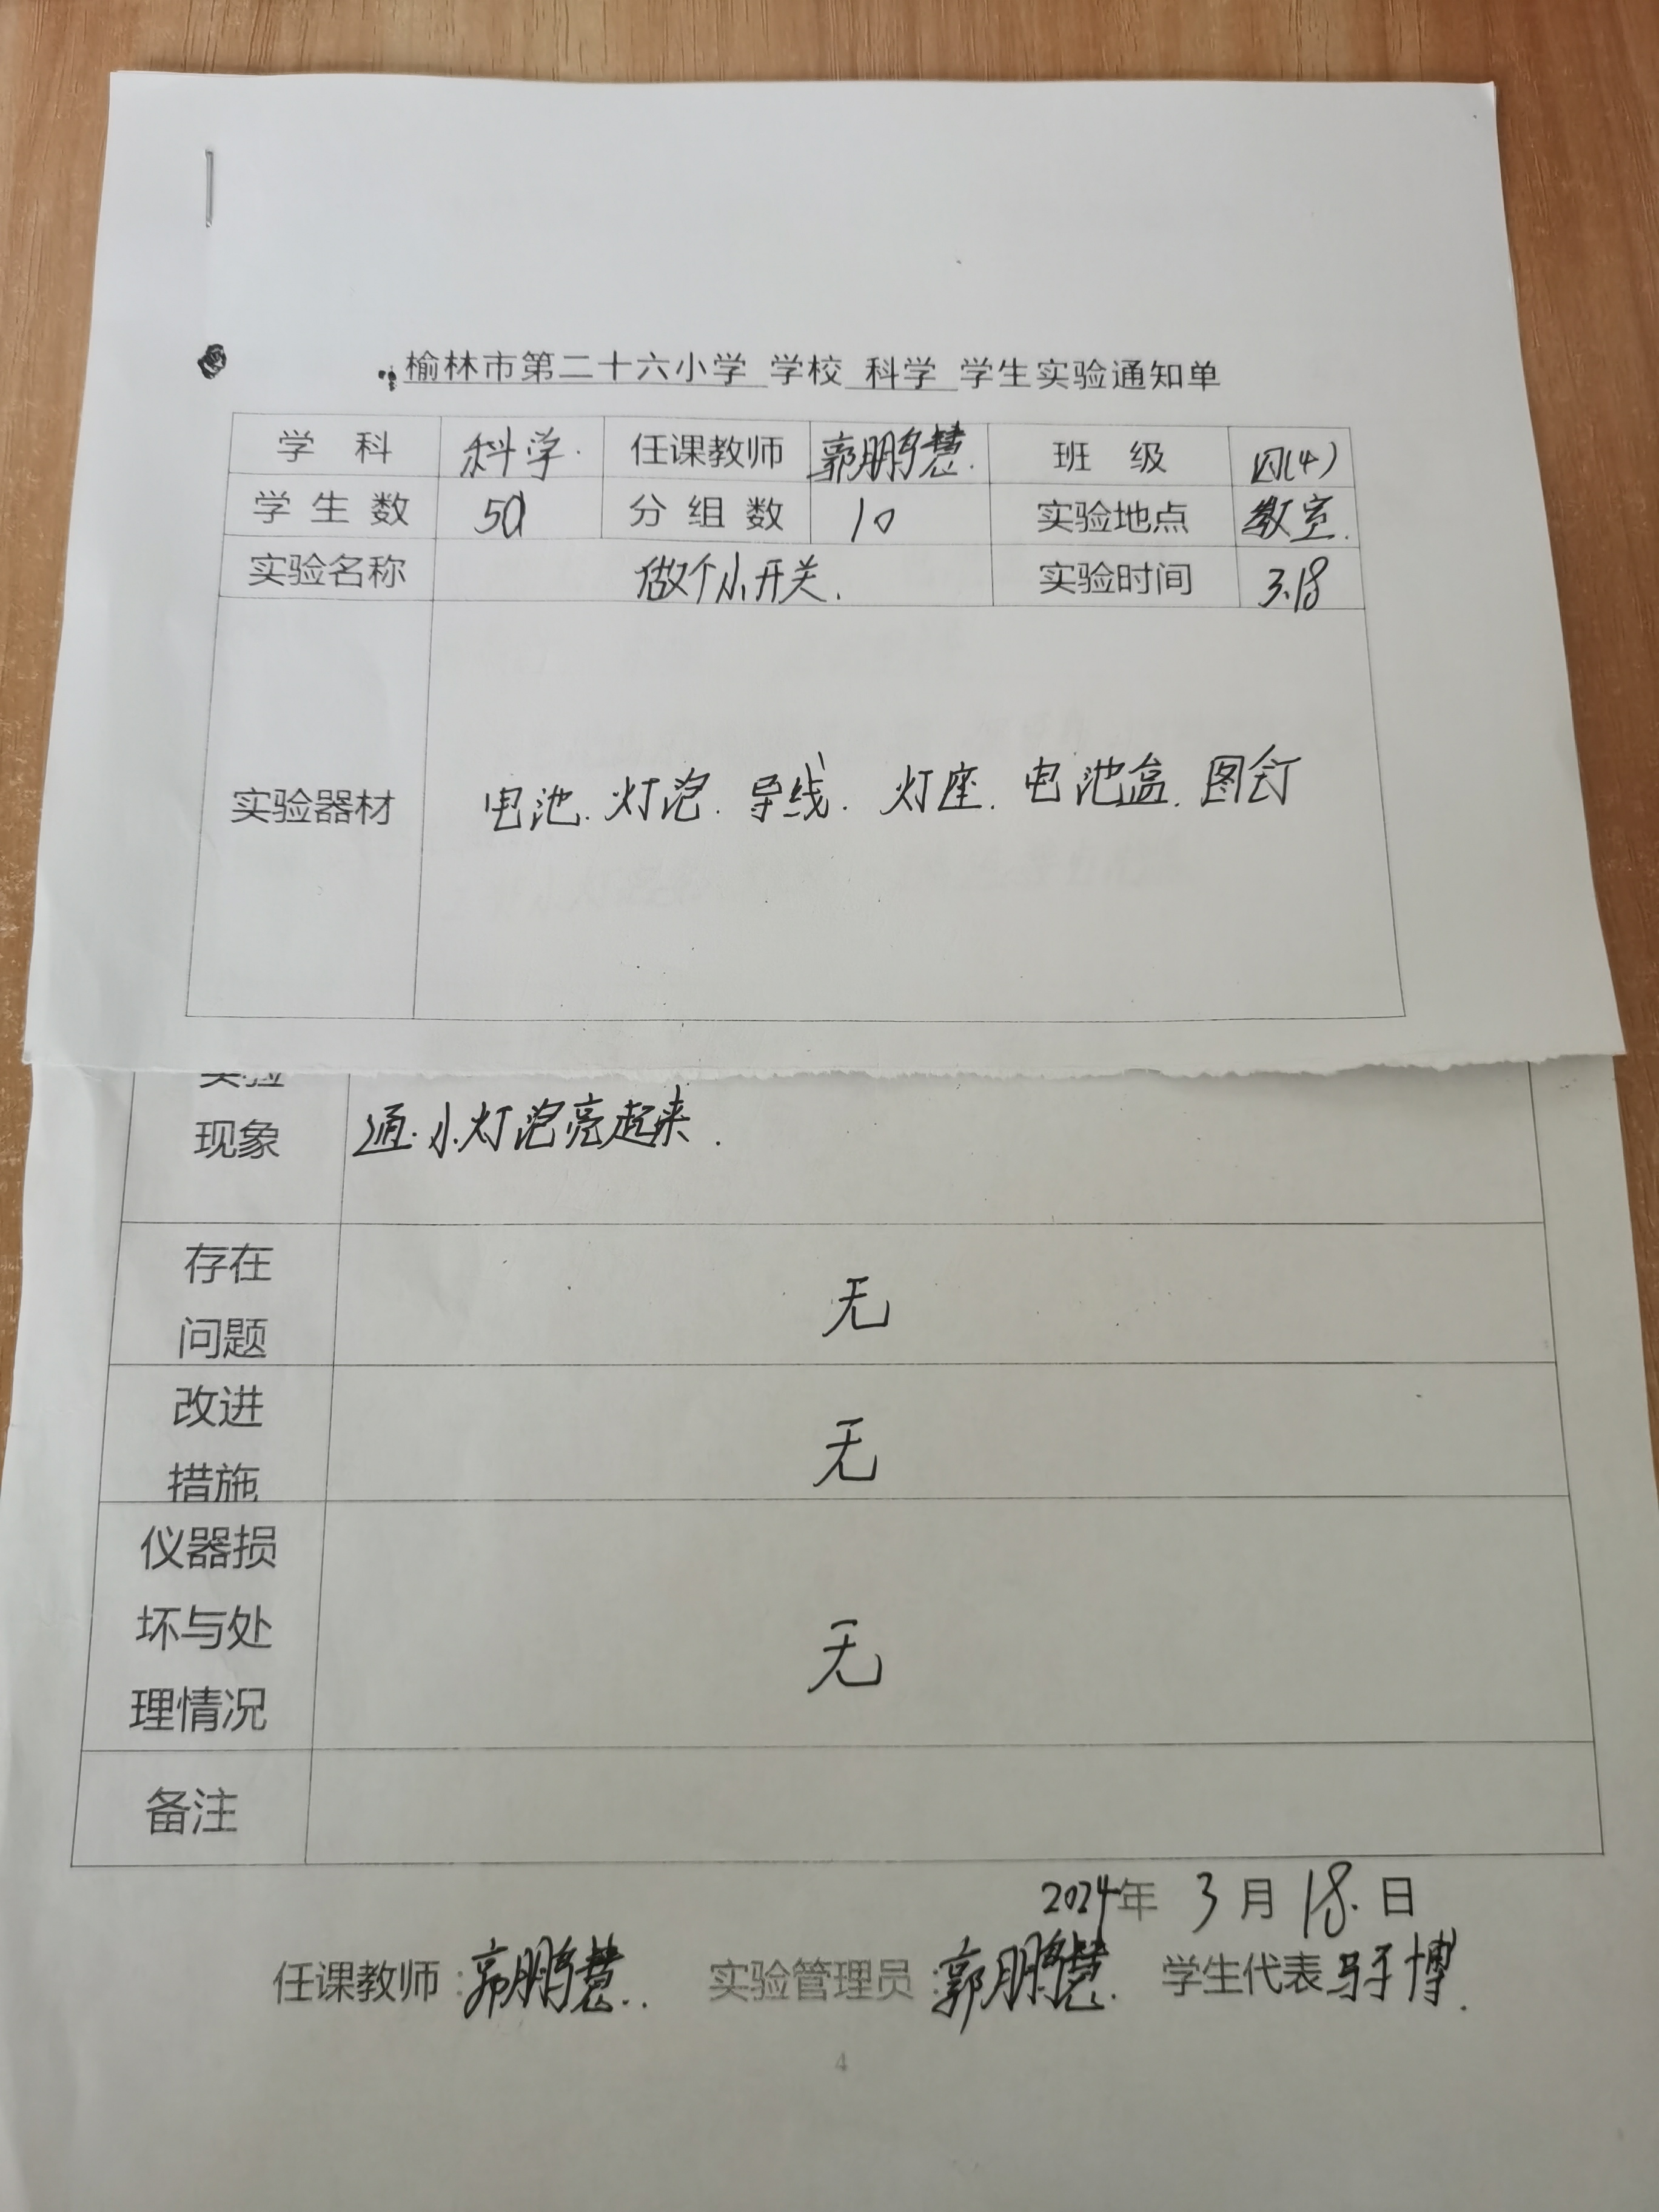 榆林市第二十六小学 学校 科学 学生实验通知单
学 科 科学. 任课教师 郭鹏慧. 班 级 四(4)
学 生 数 50 分 组 数 10 实验地点 教室.
实验名称 做个小开关. 实验时间 3.18
实验器材 电池.灯泡.导线.灯座.电池盒.图钉
实验
现象 通.小灯泡亮起来.
存在
问题 无
改进
措施 无
仪器损
坏与处
理情况 无
备注
2024年 3月 18.日
任课教师:郭鹏慧.. 实验管理员:郭鹏慧. 学生代表 马子博.
4